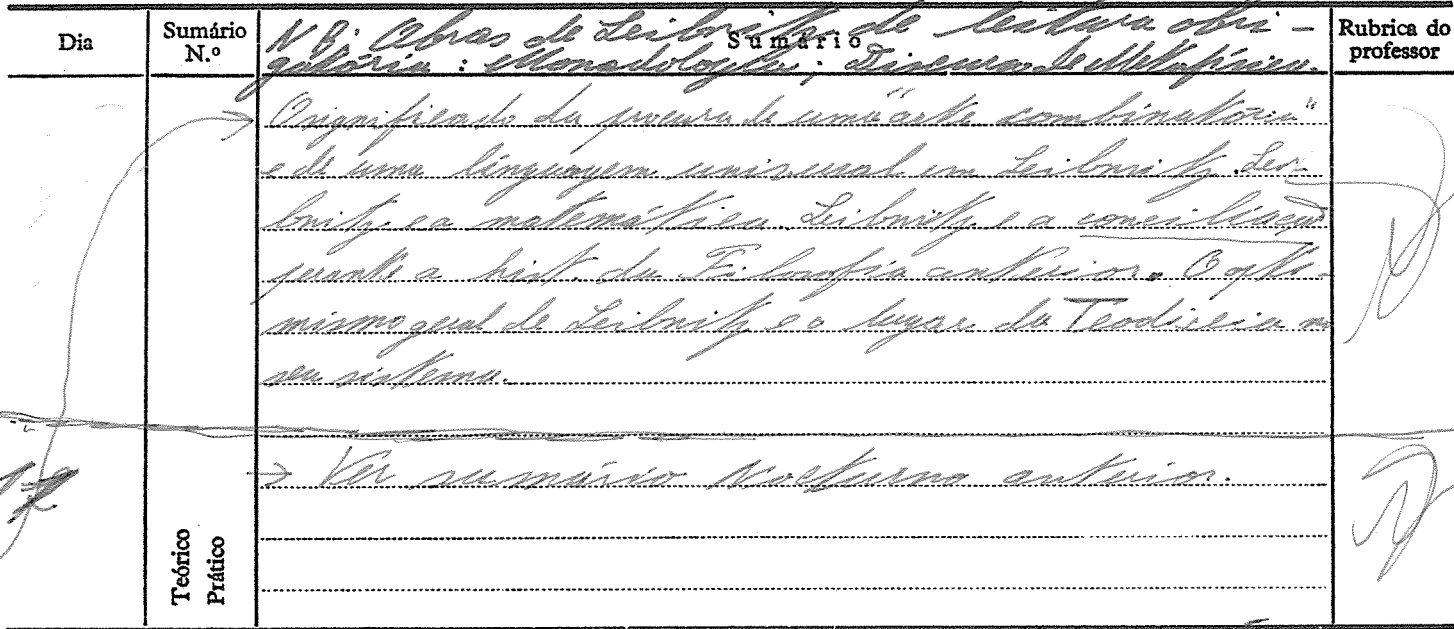 Dia
Sumário N.º
Sumário
Rubrica do professor
NB: Obras de Leibnitz de leitura obri-
gatória: Monadologia; Discurso de Metafísica.
O significado da procura de uma "arte combinatória"
e de uma linguagem universal em Leibnitz. Lei-
bnitz e a matemática. Leibnitz e a conciliação
perante a hist. da Filosofia anterior. O opti-
mismo geral de Leibnitz e o lugar da Teodiceia no
seu sistema.
→ Ver sumário Nocturno anterior.
Teórico
Prático